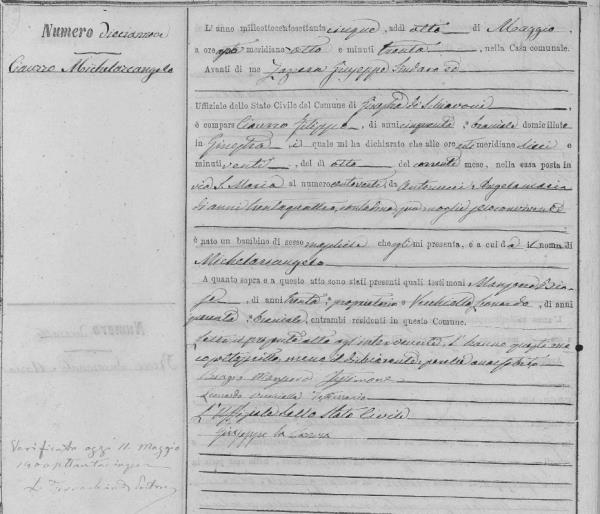 Numero diecinnove
Ciaurro Michelarcangelo
L'anno millesettecentosettanta cinque, addì otto di Maggio
a ore meridiane otto e minuti trenta, nella Casa comunale.
Avanti di me Giuseppe Sindaco ed
Uffiziale dello Stato Civile del Comune di Ginestra di Schiavoni
è comparso Ciaurro Filippo, di anni cinquanta bracciale domiciliato
in Ginestra, il quale mi ha dichiarato che alle ore meridiane dieci e
minuti venti, del dì otto del corrente mese, nella casa posta in
via S. Maria al numero ventisette, da Antonucci Angelamaria
di anni trentaquattro, contadina, sua moglie seco convivente
è nato un bambino di sesso maschile che egli mi presenta, e a cui dà il nome di
Michelarcangelo
A quanto sopra e a questo atto sono stati presenti quali testimoni Manserra Biagio
, di anni trenta proprietario e Vecchiolla Leonardo, di anni
quaranta bracciale, entrambi residenti in questo Comune.
Letto il presente atto agl'intervenuti, l'hanno questi meco
sottoscritto, meno il dichiarante, perchè analfabeta
Biagio Testimone
Leonardo Vecchiella Testimonio
L'Uffiziale dello Stato Civile
Giuseppe
Verificato oggi 11 Maggio